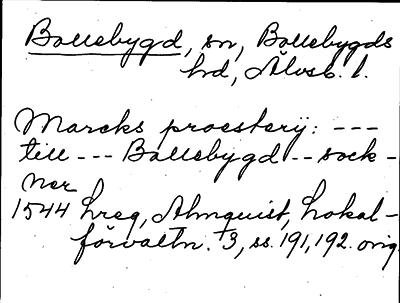 Bollebygd, sn, Bollebygds
hd, Älvsb. l.
Marcks proesterij: ---
till --- Bollebygd -- sock-
ner
1544 hreg, Almquist, Lokal-
förvaltn. 3, ss. 191, 192. orig.